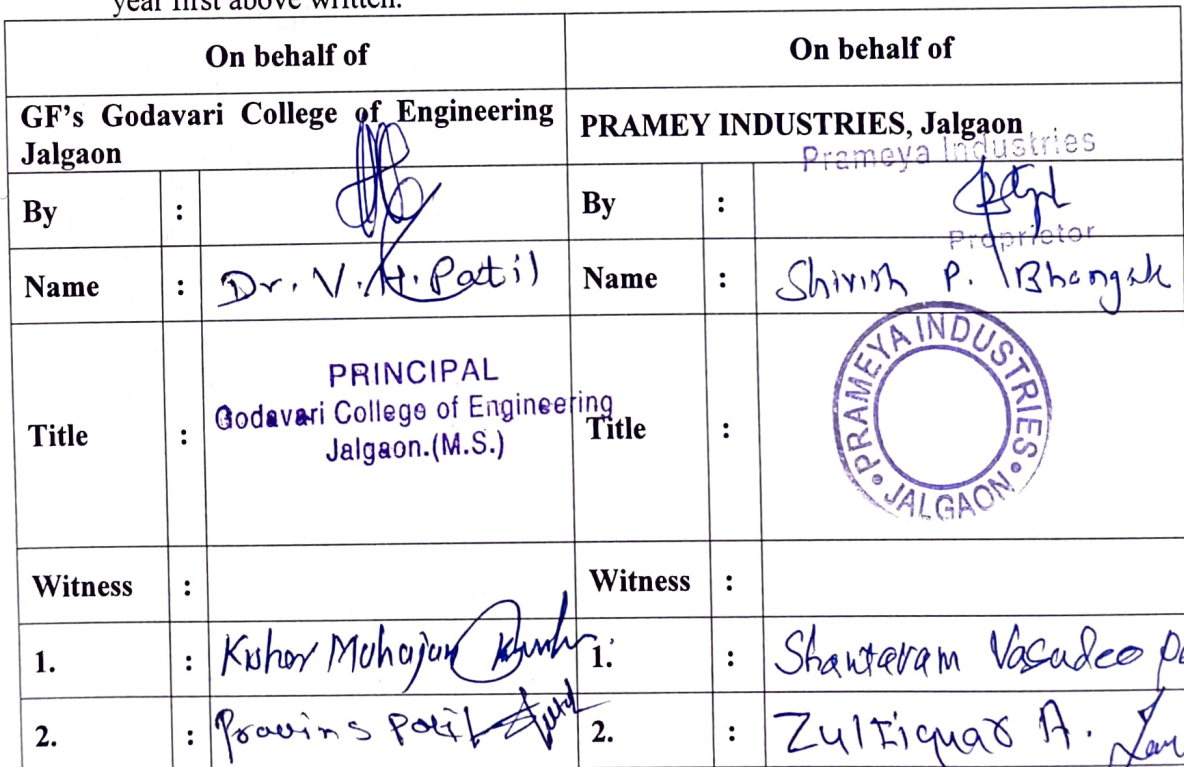 year first above written.
On behalf of On behalf of
GF's Godavari College of Engineering
Jalgaon
PRAMEY INDUSTRIES, Jalgaon
Prameya Industries
By : By :
Proprietor
Name : Dr. V. H. Patil Name : Shirish P.
PRINCIPAL
Godavari College of Engineering
Jalgaon.(M.S.)
Title : Title :
PRAMEYA INDUSTRIES
JALGAON
Witness : Witness :
1. : Kishor Mahajan 1. : Shantaram Vasudeo
2. : Pravin S Patil 2. : Zulfiquar A.